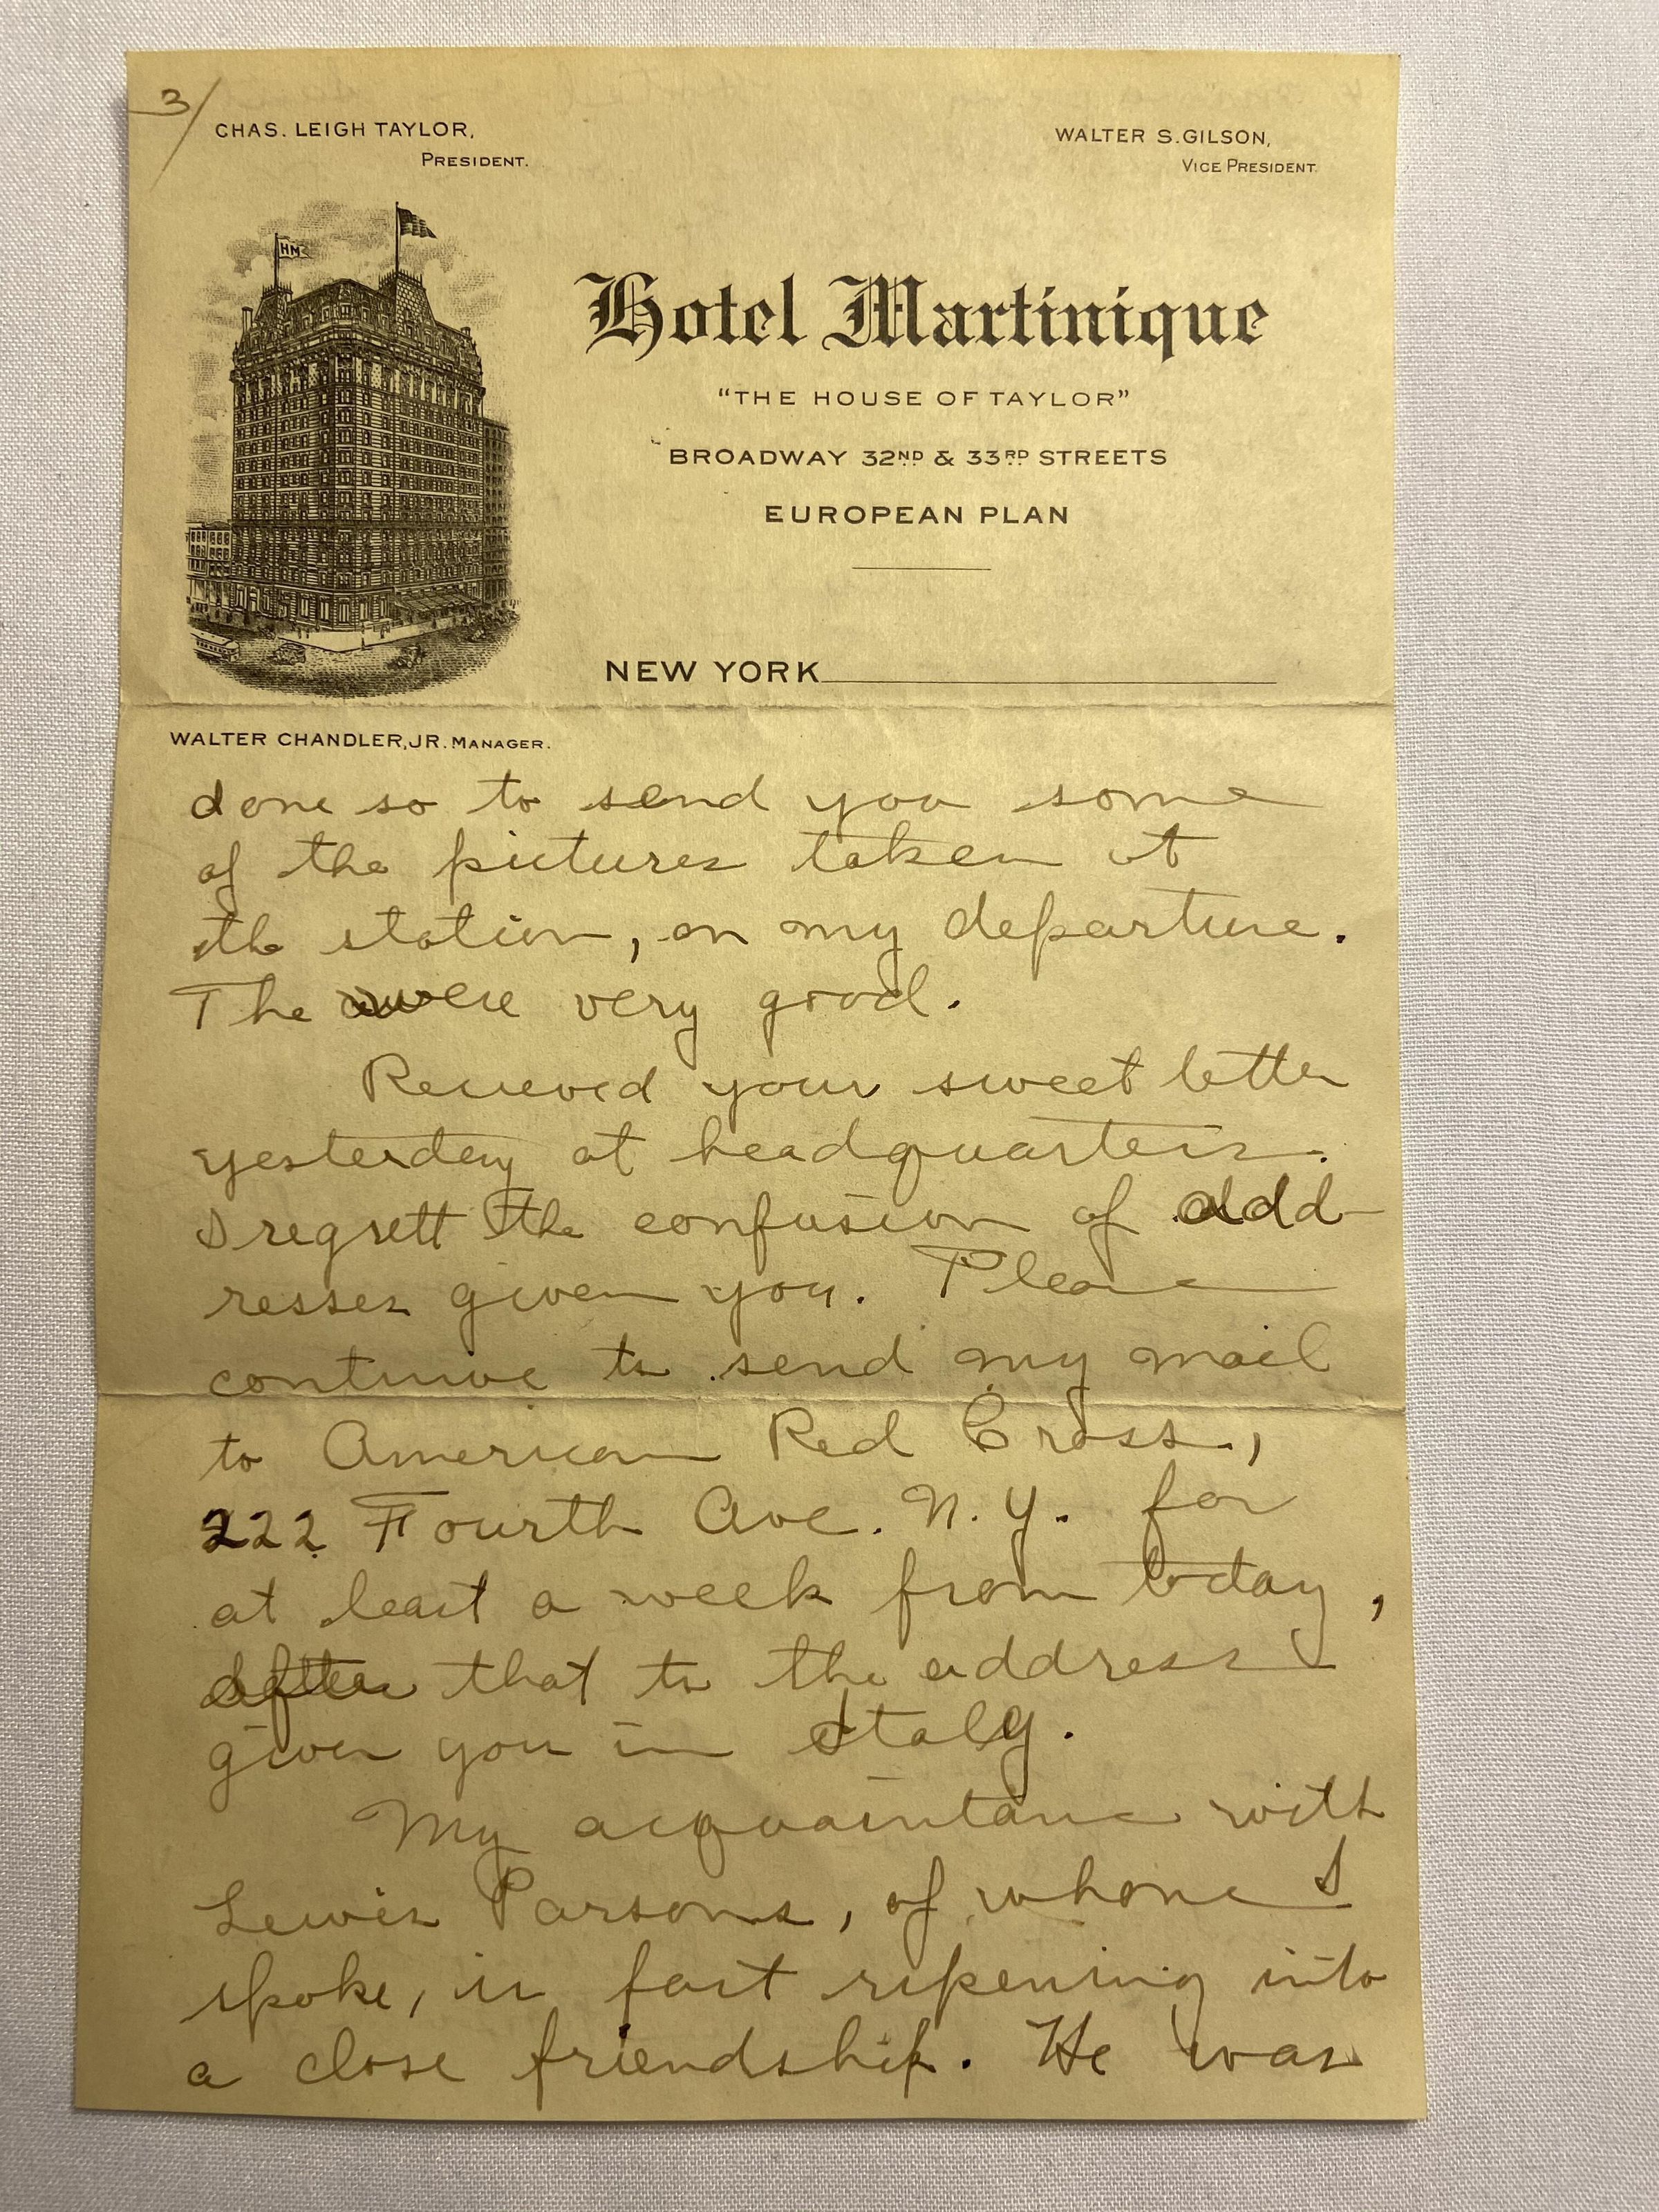 3/
CHAS. LEIGH TAYLOR,
PRESIDENT.
WALTER S. GILSON,
VICE PRESIDENT.
HM
Hotel Martinique
"THE HOUSE OF TAYLOR"
BROADWAY 32ND & 33RD STREETS
EUROPEAN PLAN
NEW YORK
WALTER CHANDLER, JR. MANAGER.
done so to send you some
of the pictures taken at
the station, on my departure.
The were very good.
Recieved your sweet letter
yesterday at headquarters.
I regrett the confusion of add-
resses given you. Please
continue to send my mail
to American Red Cross,
222 Fourth Ave. N.Y. for
at least a week from today,
after that to the address
given you in Italy.
My acquaintance with
Lewis Parsons, of whome I
spoke, is fast ripening into
a close friendship. He was